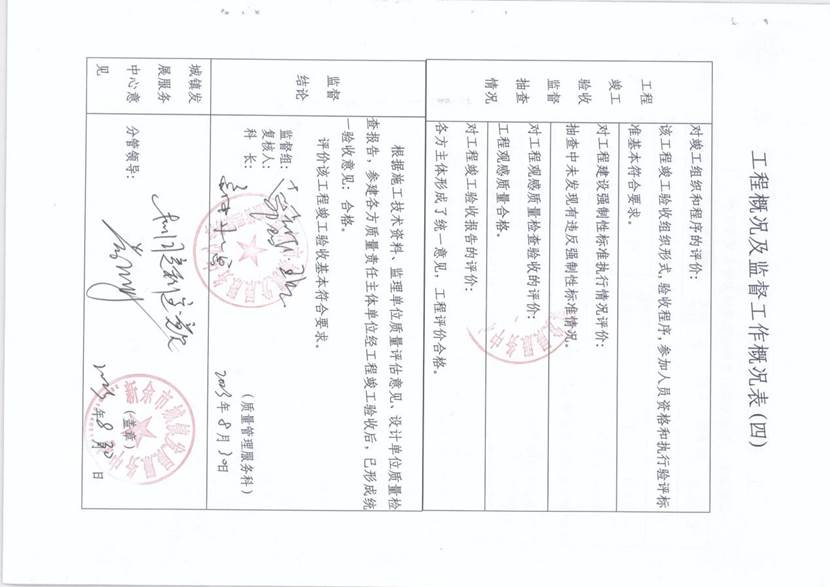 工程概况及监督工作概况表(四)
工程
竣工
验收
监督
抽查
情况
对竣工组织和程序的评价:
该工程竣工验收组织形式,验收程序,参加人员资格和执行验评标
准基本符合要求。
对工程建设强制性标准执行情况评价:
抽查中未发现有违反强制性标准情况。
对工程观感质量检查验收的评价:
工程观感质量合格。
对工程竣工验收报告的评价:
各方主体形成了统一意见,工程评价合格。
监督
结论
根据施工技术资料、监理单位质量评估意见、设计单位质量检
查报告,参建各方质量责任主体单位经工程竣工验收后,已形成统
一验收意见:合格。
评价该工程竣工验收基本符合要求。
监督组:
复核人:
科 长:
(质量管理服务科)
2023年8月30日
城镇发
展服务
中心意
见
分管领导:
(盖章)
2023年8月30日